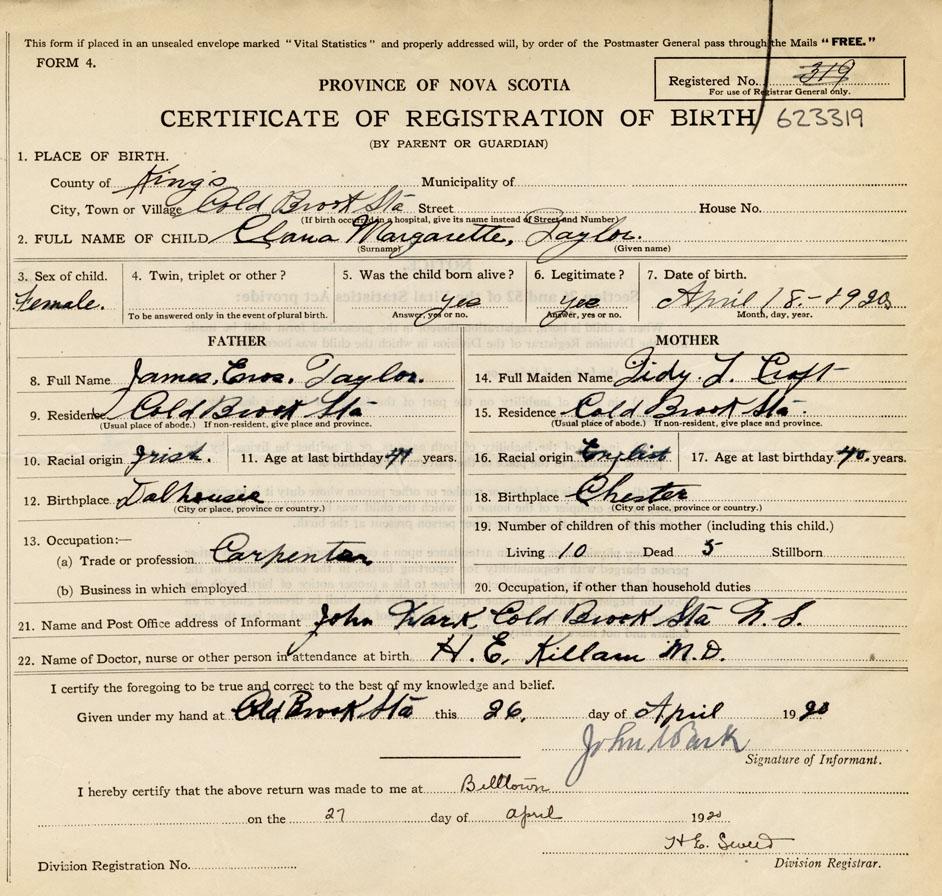 This form if placed in an unsealed envelope marked "Vital Statistics" and properly addressed will, by order of the Postmaster General pass through the Mails "FREE."
FORM 4.
PROVINCE OF NOVA SCOTIA
Registered No. 319
For use of Registrar General only.
CERTIFICATE OF REGISTRATION OF BIRTH 623319
(BY PARENT OR GUARDIAN)
1. PLACE OF BIRTH.
County of King's Municipality of
City, Town or Village Cold Brook Sta Street House No.
(If birth occurred in a hospital, give its name instead of Street and Number)
2. FULL NAME OF CHILD Clara Margarette, Taylor.
(Surname) (Given name)
3. Sex of child. 4. Twin, triplet or other? 5. Was the child born alive? 6. Legitimate? 7. Date of birth.
Female. yes yes April 18.-1920
To be answered only in the event of plural birth. Answer, yes or no. Answer, yes or no. Month, day, year.
FATHER MOTHER
8. Full Name James, Enos. Taylor. 14. Full Maiden Name L. Croft
9. Residence Cold Brook Sta 15. Residence Cold Brook Sta.
(Usual place of abode.) If non-resident, give place and province. (Usual place of abode.) If non-resident, give place and province.
10. Racial origin Irish. 11. Age at last birthday years. 16. Racial origin English 17. Age at last birthday 40. years.
12. Birthplace Dalhousie 18. Birthplace Chester
(City or place, province or country.) (City or place, province or country.)
19. Number of children of this mother (including this child.)
13. Occupation:—
(a) Trade or profession Carpenter Living 10 Dead 5 Stillborn
(b) Business in which employed 20. Occupation, if other than household duties
21. Name and Post Office address of Informant John Wark, Cold Brook Sta N.S.
22. Name of Doctor, nurse or other person in attendance at birth H. E. Killam M.D.
I certify the foregoing to be true and correct to the best of my knowledge and belief.
Given under my hand at Cold Brook Sta this 26, day of April 1920
John Wark
Signature of Informant.
I hereby certify that the above return was made to me at Billtown
on the 27 day of April 1920
H.E.
Division Registration No. Division Registrar.